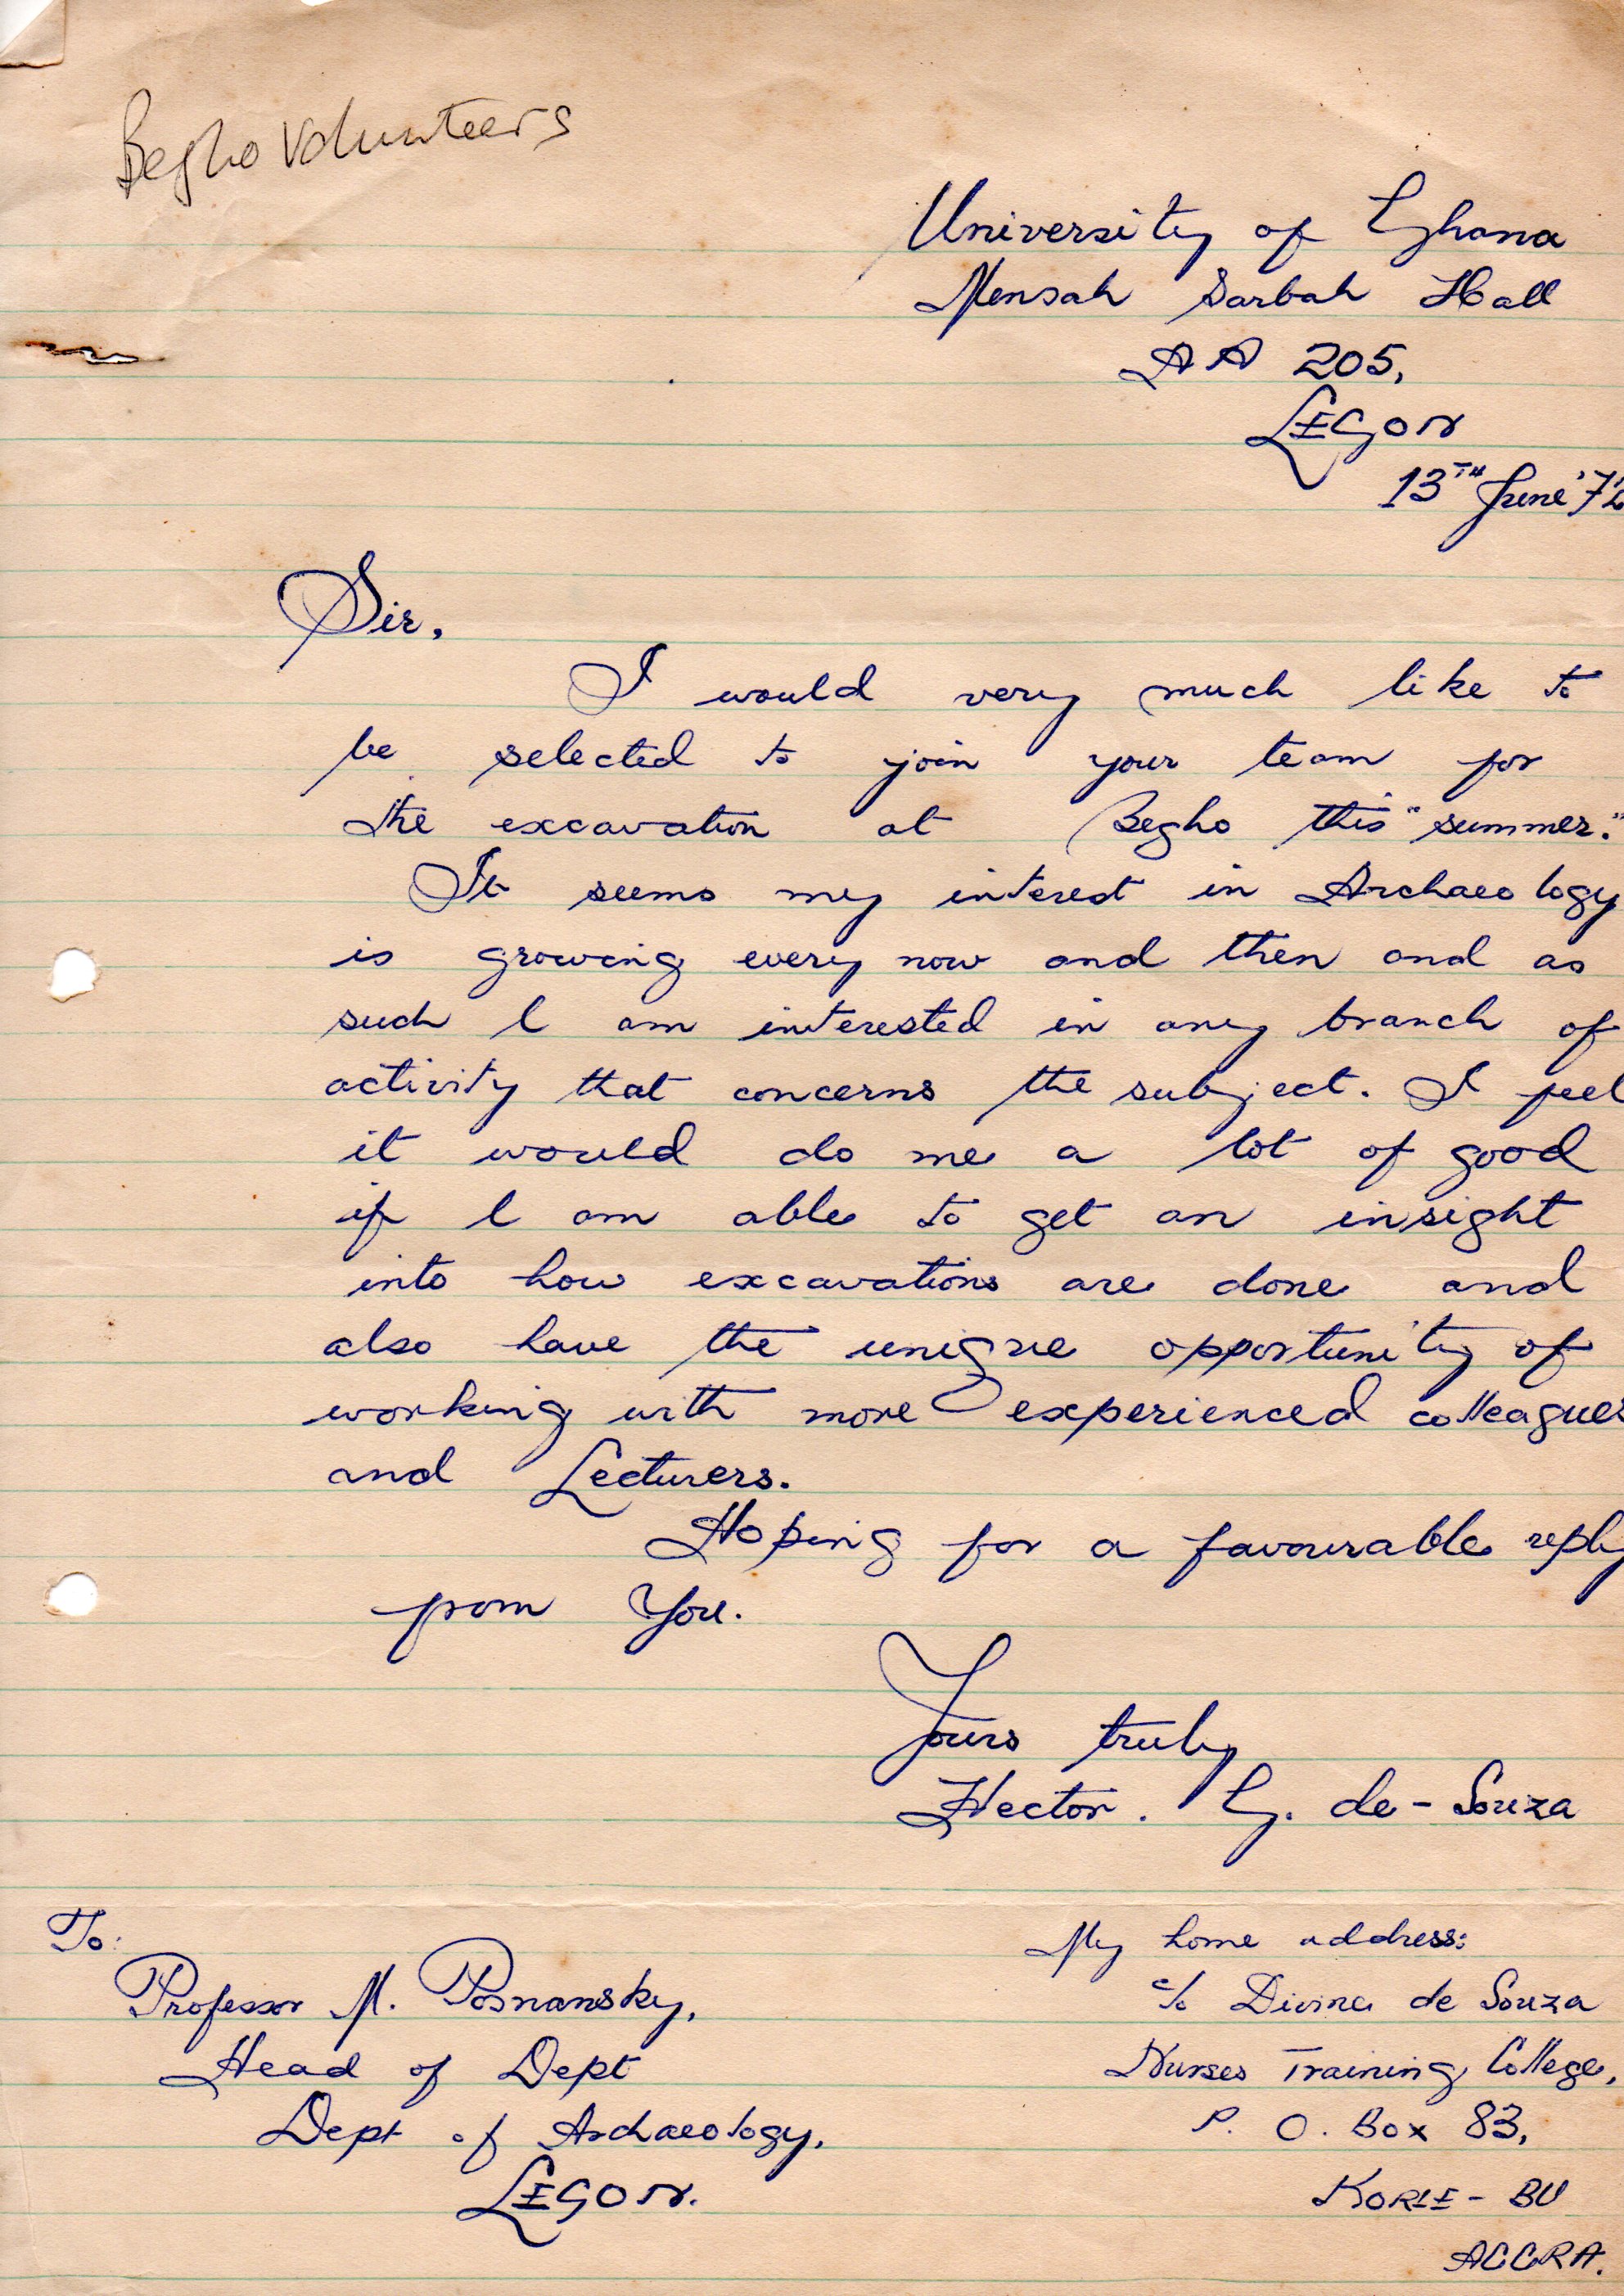 Begho Volunteers
University of Ghana
Mensah Sarbah Hall
AA 205,
LEGON
13TH June '72
Sir,
I would very much like to
be selected to join your team for
the excavation at Begho this "summer."
It seems my interest in Archaeology
is growing every now and then and as
such I am interested in any branch of
activity that concerns the subject. I feel
it would do me a lot of good
if I am able to get an insight
into how excavations are done and
also have the unique opportunity of
working with more experienced colleagues
and Lecturers.
Hoping for a favourable reply
from You.
Yours truly
Hector. G. de-Souza
To:
Professor M. Posnansky,
Head of Dept
Dept of Archaeology,
LEGON.
My home address:
c/o Divine de Souza
Nurses Training College,
P. O. Box 83,
KORLE-BU
ACCRA.